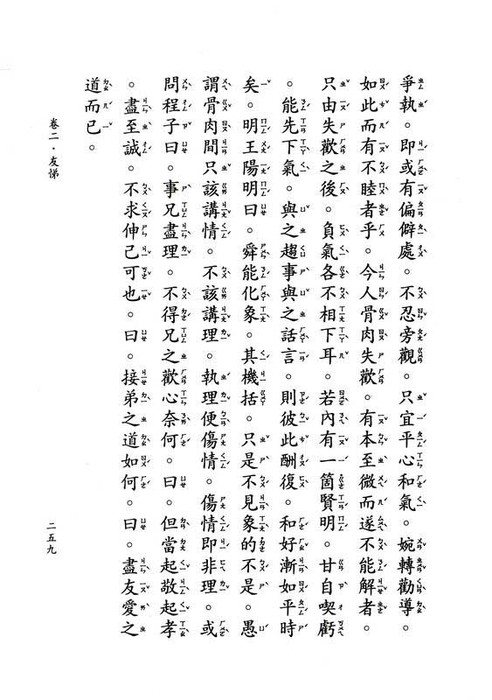 爭執。即或有偏僻處。不忍旁觀。只宜平心和氣。婉轉勸導。
如此而有不睦者乎。今人骨肉失歡。有本至微而遂不能解者。
只由失歡之後。負氣各不相下耳。若內有一箇賢明。甘自喫虧
。能先下氣。與之趨事與之話言。則彼此酬復。和好漸如平時
矣。明王陽明曰。舜能化象。其機括。只是不見象的不是。愚
謂骨肉間只該講情。不該講理。執理便傷情。傷情即非理。或
問程子曰。事兄盡理。不得兄之歡心奈何。曰。但當起敬起孝
。盡至誠。不求伸己可也。曰。接弟之道如何。曰。盡友愛之
道而已。
卷二·友悌
二五九